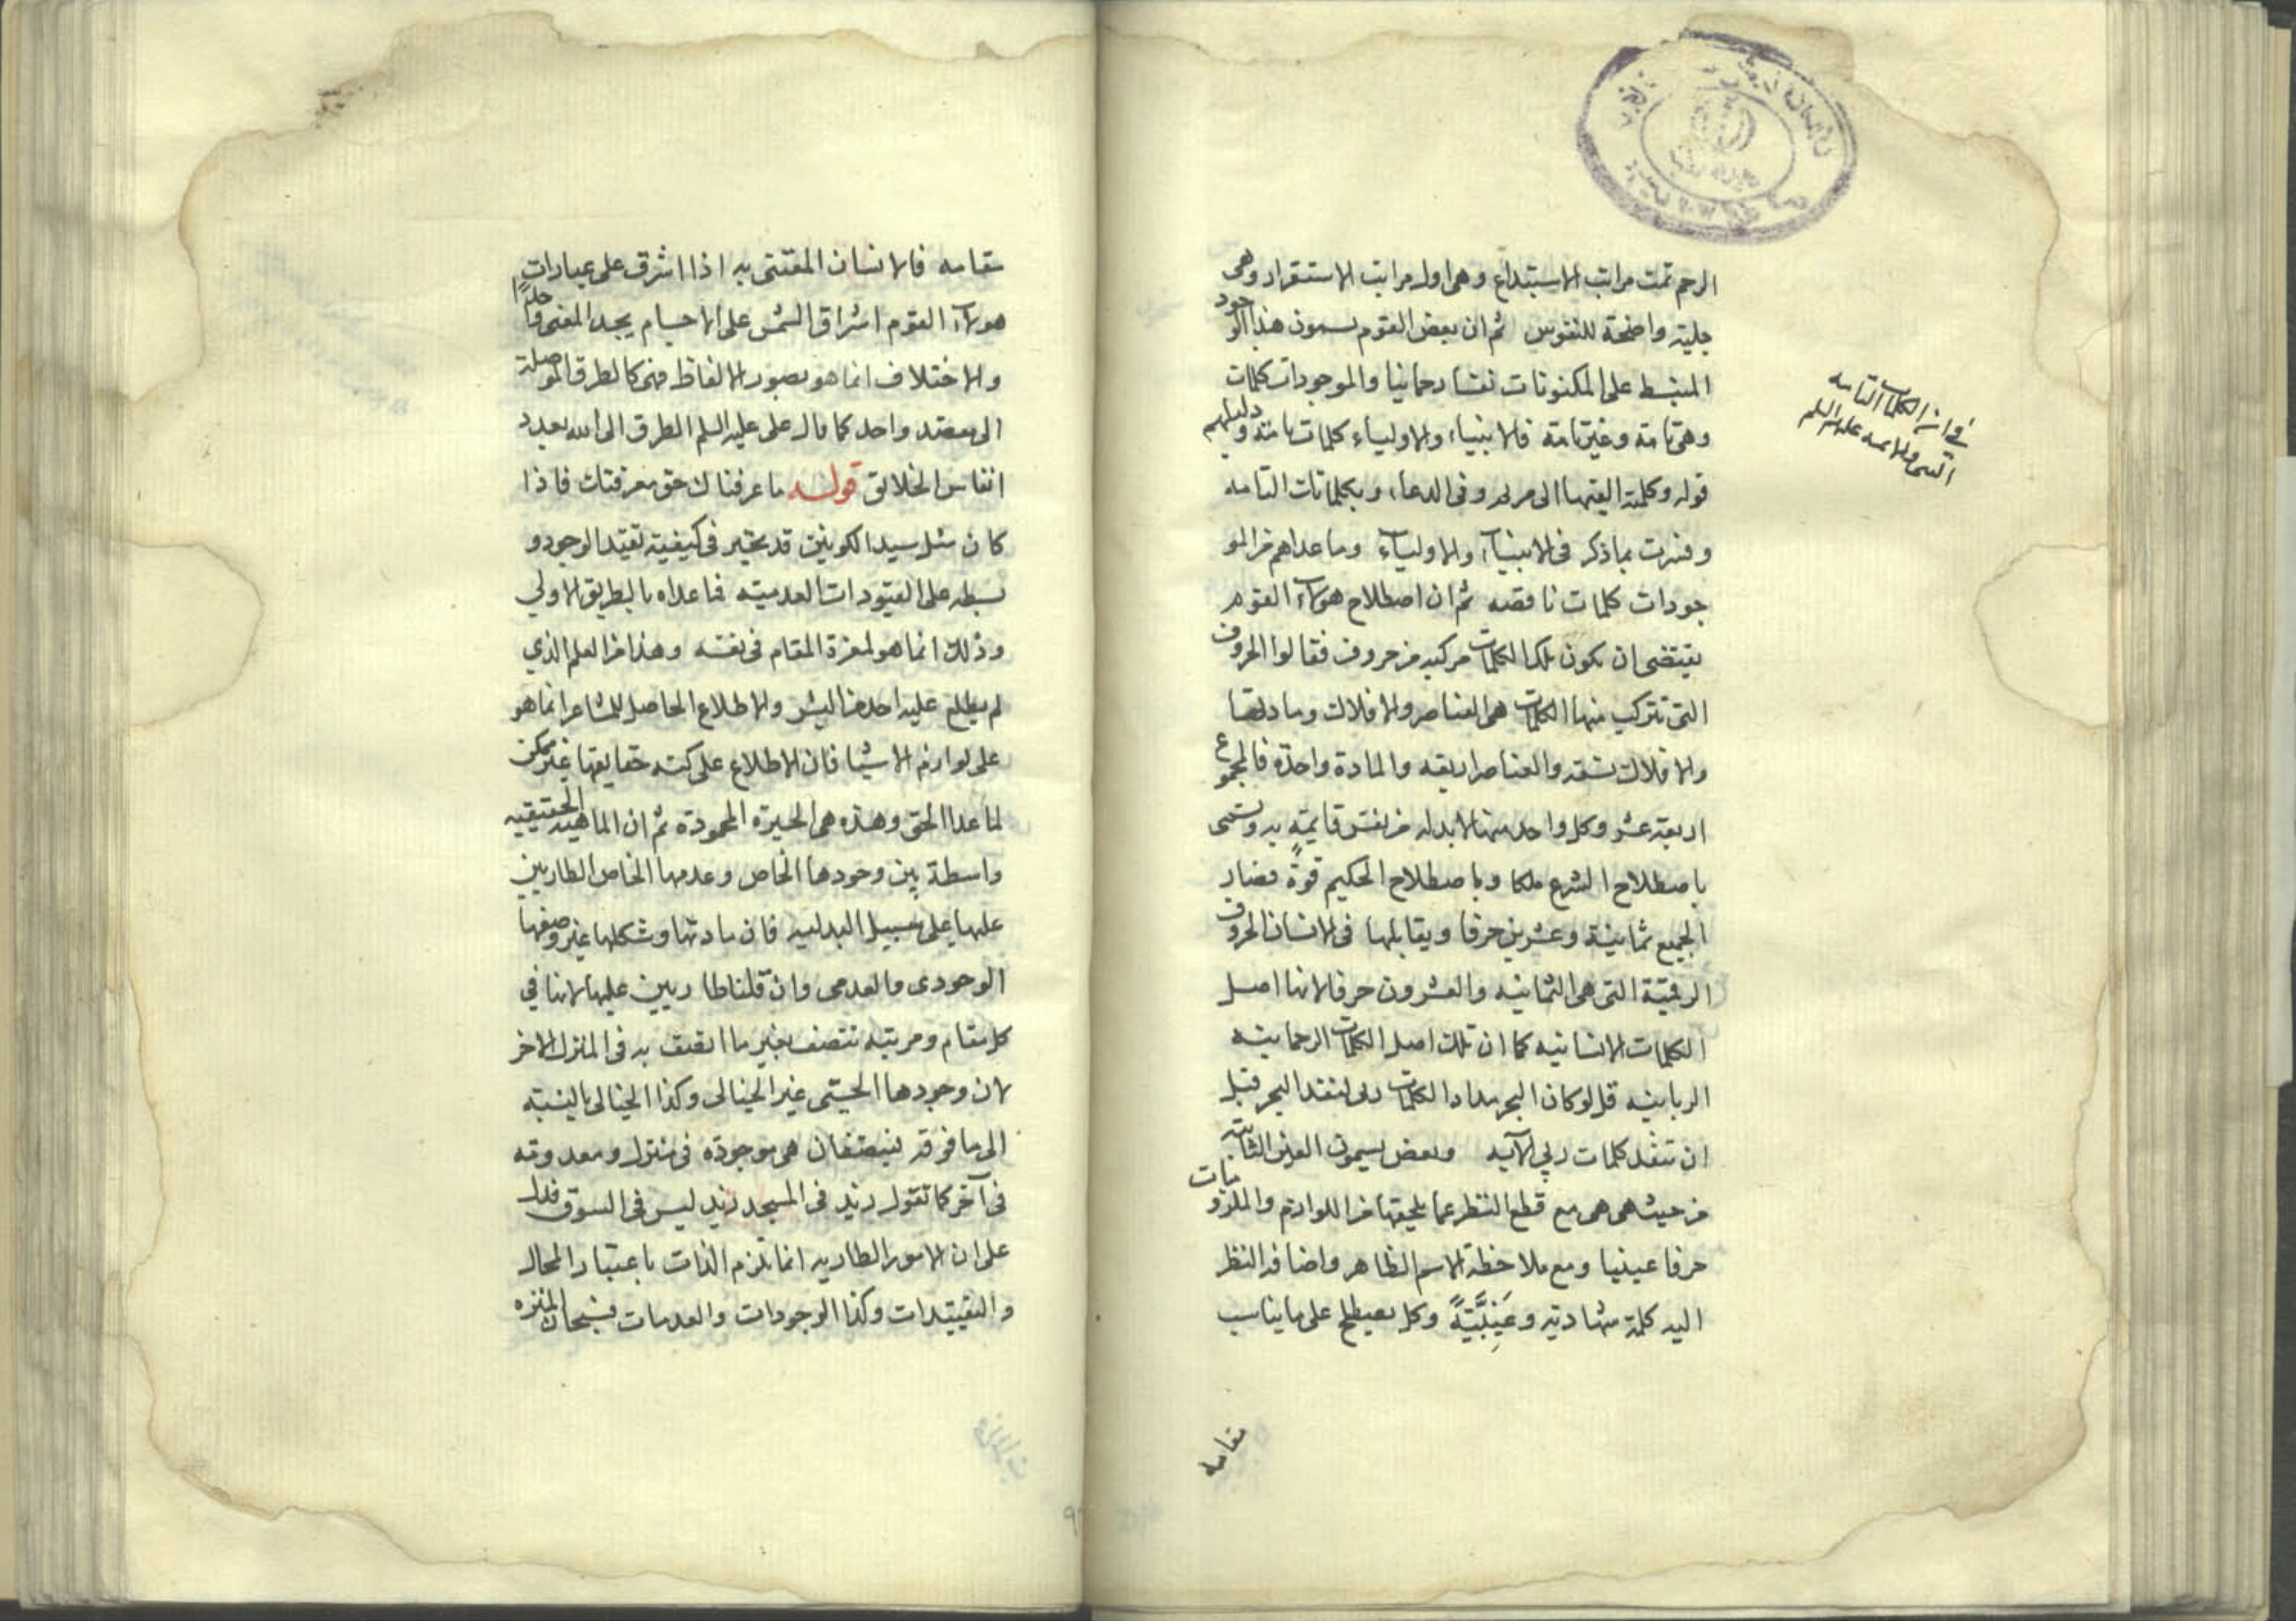 الرحم تمت مراتب الاستبداع وهی اول مراتب الاستقرار وهی
جلیة واضحة للنفوس ثم ان بعض القوم یسمون هذا الوجود
المنبسط علی المکنونات نفسا رحمانیا والموجودات کلمات
وهی تامة وغیر تامة فالانبیاء والاولیاء کلمات تامة ودلیلهم
قوله وکلمة القیها الی مریم وفی الدعاء وبکلماتک التامه
وفسرت بما ذکر فی الانبیاء والاولیاء وما عداهم من المو
جودات کلمات ناقصه ثم ان اصطلاح هولاء القوم
یقتضی ان یکون تلک الکلمات مرکبه من حروف فقالوا الحروف
التی تترکب منها الکلمات هی العناصر والافلاک ومادتها
والافلاک تسعه والعناصر اربعه والمادة واحدة فالمجموع
اربعة عشر وکل واحد منها لابد له من نفس قایمة به وتسمی
باصطلاح الشرع ملکا وباصطلاح الحکیم قوة فصار
الجمیع ثمانیة وعشرین حرفا ویقابلها فی الانسان الحروف
الرقمیة التی هی الثمانیه والعشرون حرفا لانها اصل
الکلمات الانسانیه کما ان تلک اصل الکلمات الرحمانیه
الربانیه قل لو کان البحر مدادا لکلمات ربی لنفد البحر قبل
ان تنفد کلمات ربی الآیه وبعض یسمون العین الثابته
من حیث هی هی مع قطع النظر عما یلحقها من اللوازم والملزومات
حرفا عینیا ومع ملاحظة الاسم الظاهر واضافه النظر
الیه کلمة شهادتیه وغیبیة وکل یصطلح علی ما یناسب
مقامه
فی ان الکلمات التامه
النبی والائمه علیهم السلم
مقامه فالانسان المعتنی به اذا اشرق علی عبارات
هولاء القوم اشراق الشمس علی الاجسام یجد المعنی واحدا
والاختلاف انما هو بصور الالفاظ فهی کالطرق الموصلة
الی مقصد واحد کما قال علی علیه السلم الطرق الی الله بعدد
انفاس الخلائق قوله ما عرفناک حق معرفتک فاذا
کان مثل سید الکونین قد تحیر فی کیفیة تقید الوجود و
بسطه علی القیودات العدمیته فما عداه بالطریق الاولی
وذلک انما هو لعزة المقام فی نفسه وهذا من العلم الذی
لم یطلع علیه احد من البشر والاطلاع الحاصل للمشاعر انما هو
علی لوازم الاشیا فان الاطلاع علی کنه حقایقها غیر ممکن
لما عدا الحق وهذه هی الحیرة المحمودة ثم ان الماهیه الحقیقیه
واسطة بین وجودها الخاص وعدمها الخاص الطارین
علیها علی سبیل البدلیه فان مادتها وشکلها غیر وصفها
الوجودی والعدمی وان قلنا طاریین علیها لانها فی
کل مقام ومرتبه تتصف بغیر ما اتصف به فی المنزل الاخر
لان وجودها الحسّی غیر الخیالی وکذا الخیالی بالنسبة
الی ما فوقه فیصدق ان هی موجودة فی منزل ومعدومه
فی آخر کما تقول زید فی المسجد زید لیس فی السوق فدل
علی ان الامور الطاریه انما تلزم الذات باعتبار المحال
والتقییدات وکذا الوجودات والعدمات فسبحان المنزه